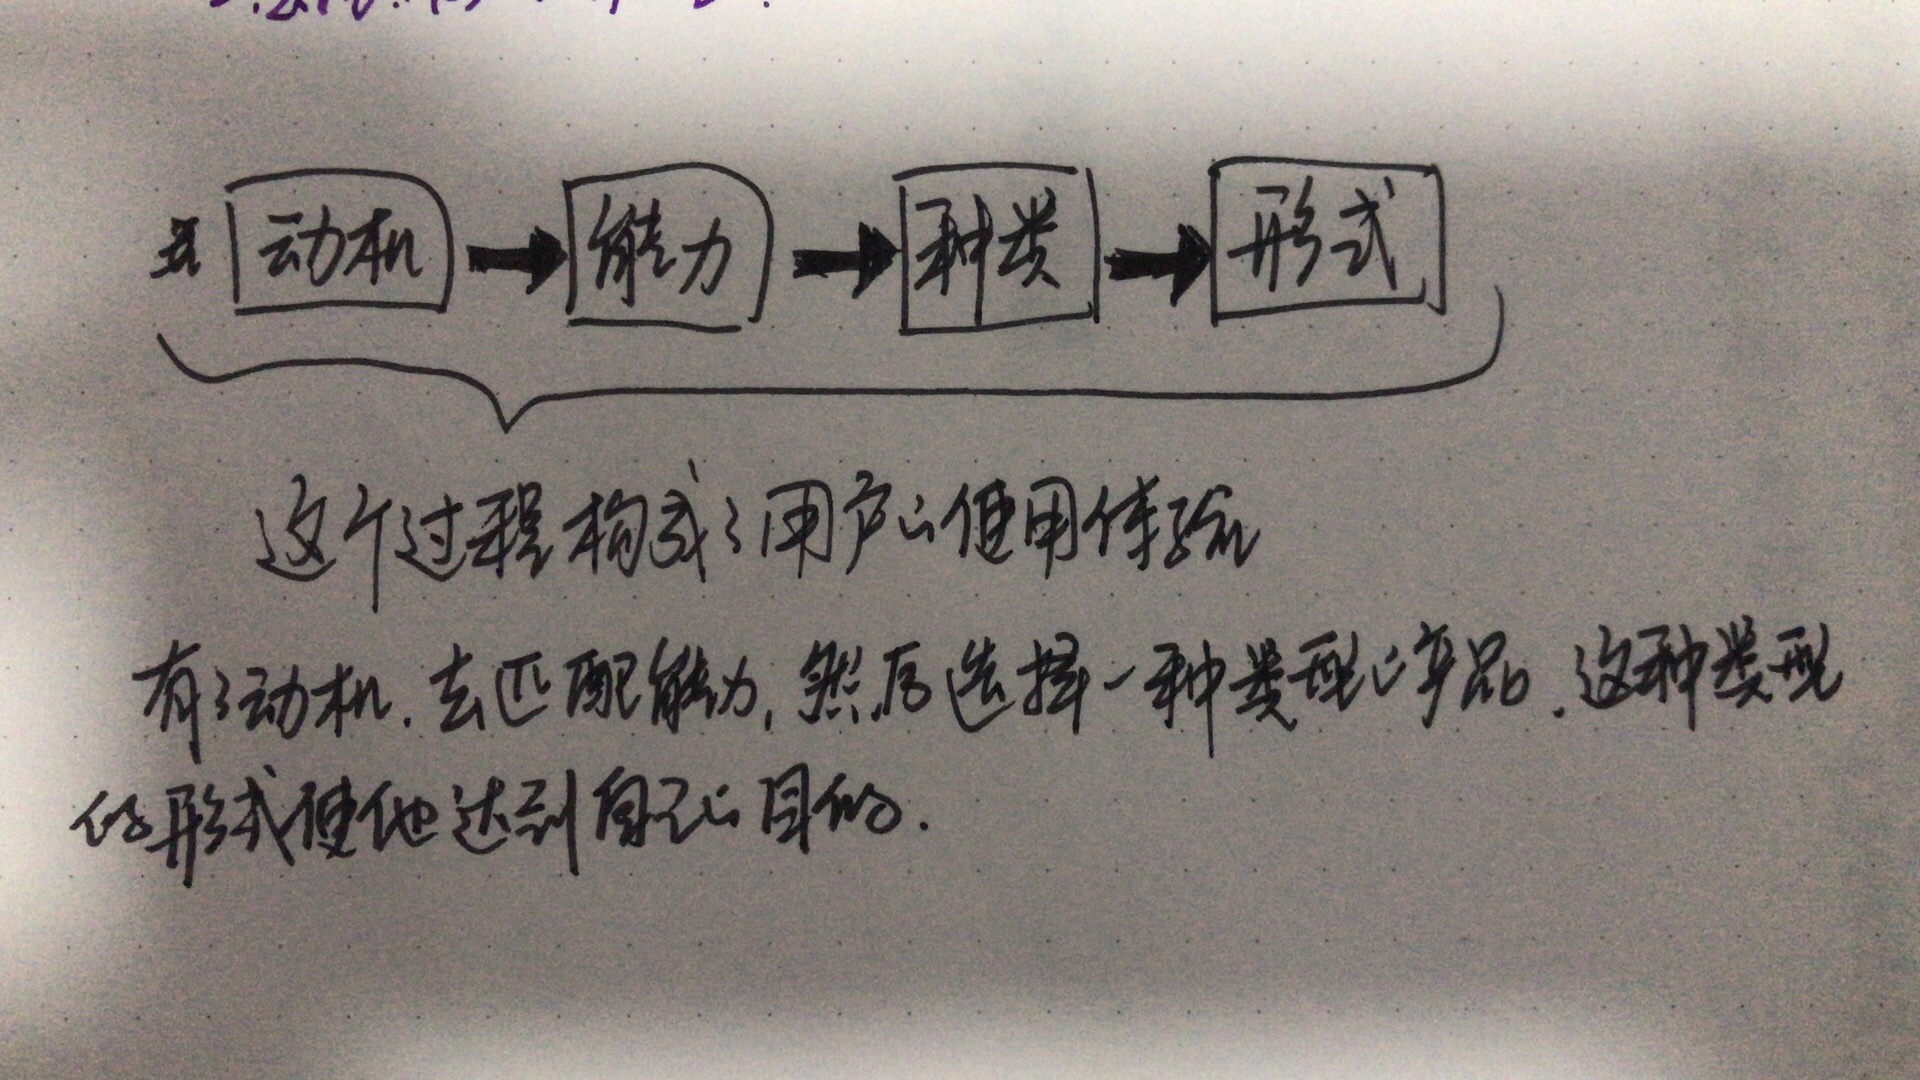 动机 → 能力 → 种类 → 形式
这个过程构成了用户的使用体验
有了动机.去匹配能力,然后选择一种类型的产品.这种类型
的形式使他达到自己的目的.